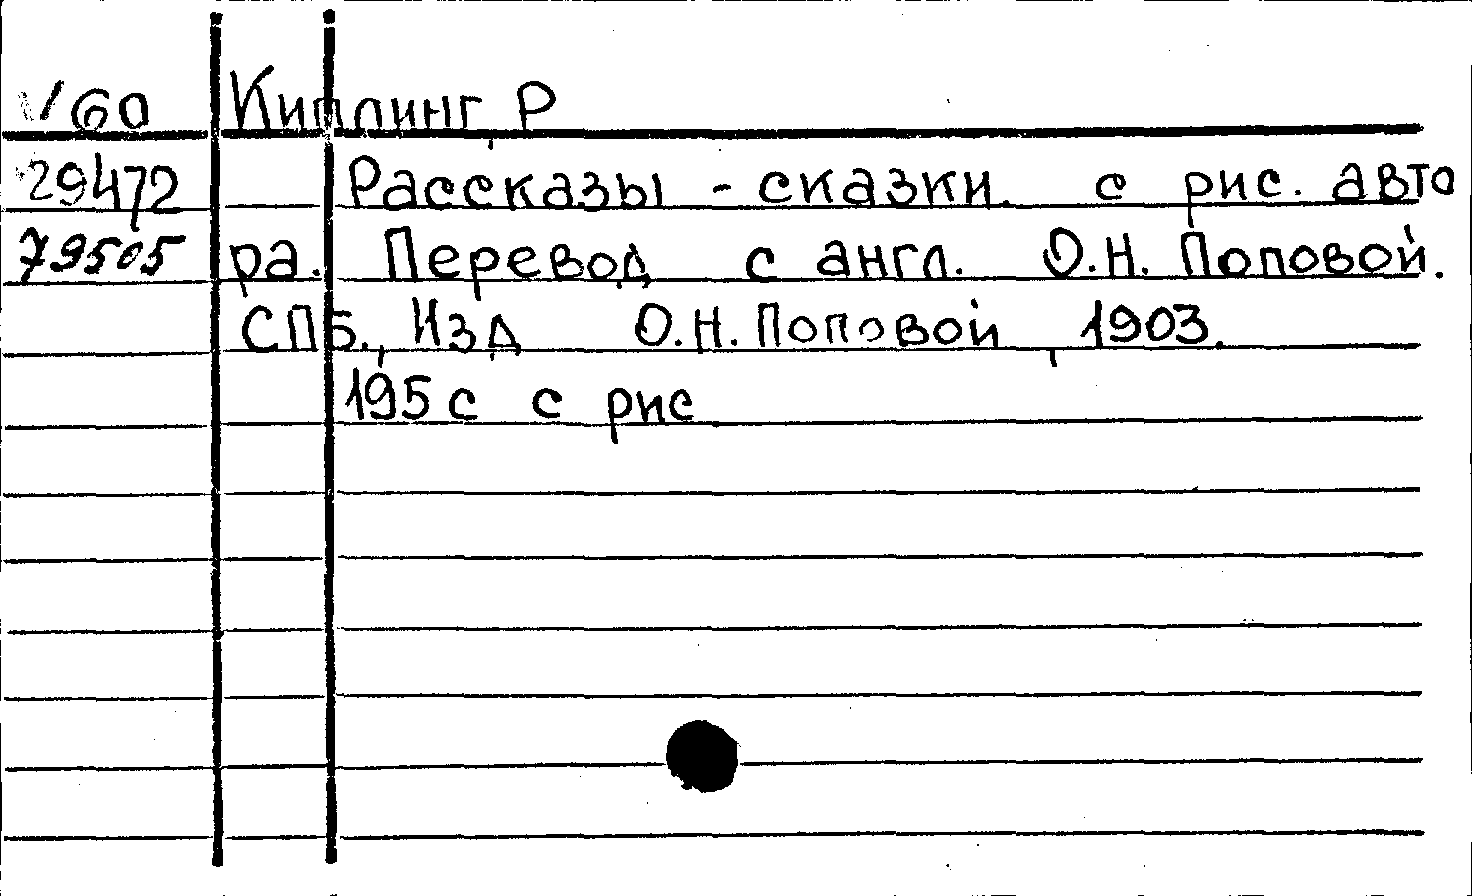 V60 Киплинг, Р
29472 Рассказы - сказки. с рис. авто
79505 ра. Перевод с англ. О.Н. Поповой.
СПБ., Изд О.Н. Поповой, 1903.
195 с с рис